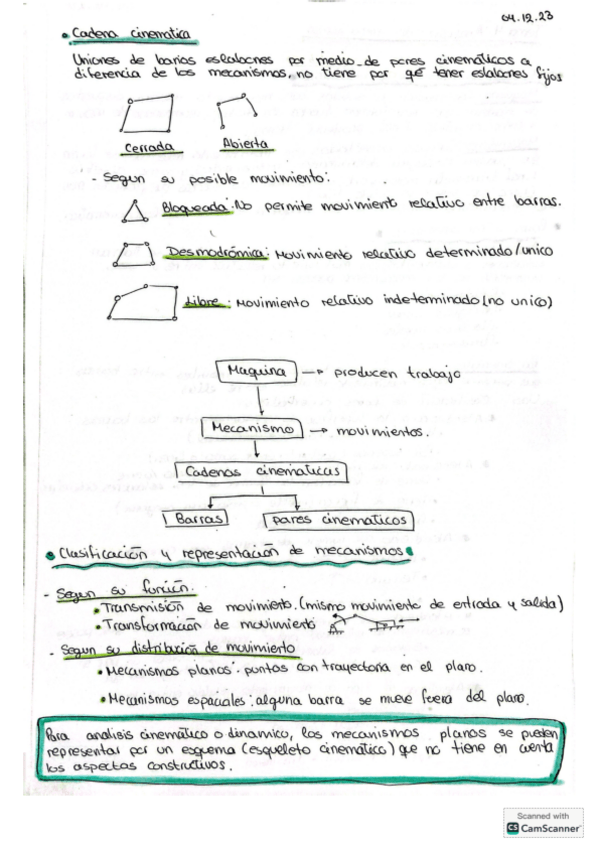 04.12.23
• Cadena cinematica
Uniones de barios eslabones por medio de pares cinemáticos a
diferencia de los mecanismos, no tiene por qé tener eslabones fijos
Cerrada
Abierta
· Segun su posible movimiento:
Bloqueada: No permite movimient relativo entre barras.
Desmodrómica: Movimiento relativo determinado/unico
Libre: Movimiento relativo indeterminado (no unico)
Maquina → producen trabajo
Mecanismo → movimientos.
Cadenas cinematicas
Barras
pares cinematicos
• Clasificación y representación de mecanismos
- Segun su función.
• Transmisión de movimiento. (mismo movimiento de entrada y salida)
• Transformación de movimiento
- Segun su distribución de movimiento
• Mecanismos planos: puntos con trayectoria en el plano.
• Mecanismos espaciales: alguna barra se mueve fuera del plano.
Para analisis cinemático o dinamico, los mecanismos planos se pueden
representar por un esquema (esqueleto cinematico) que no tiene en cuenta
los aspectos constructivos.
Scanned with
CS CamScanner